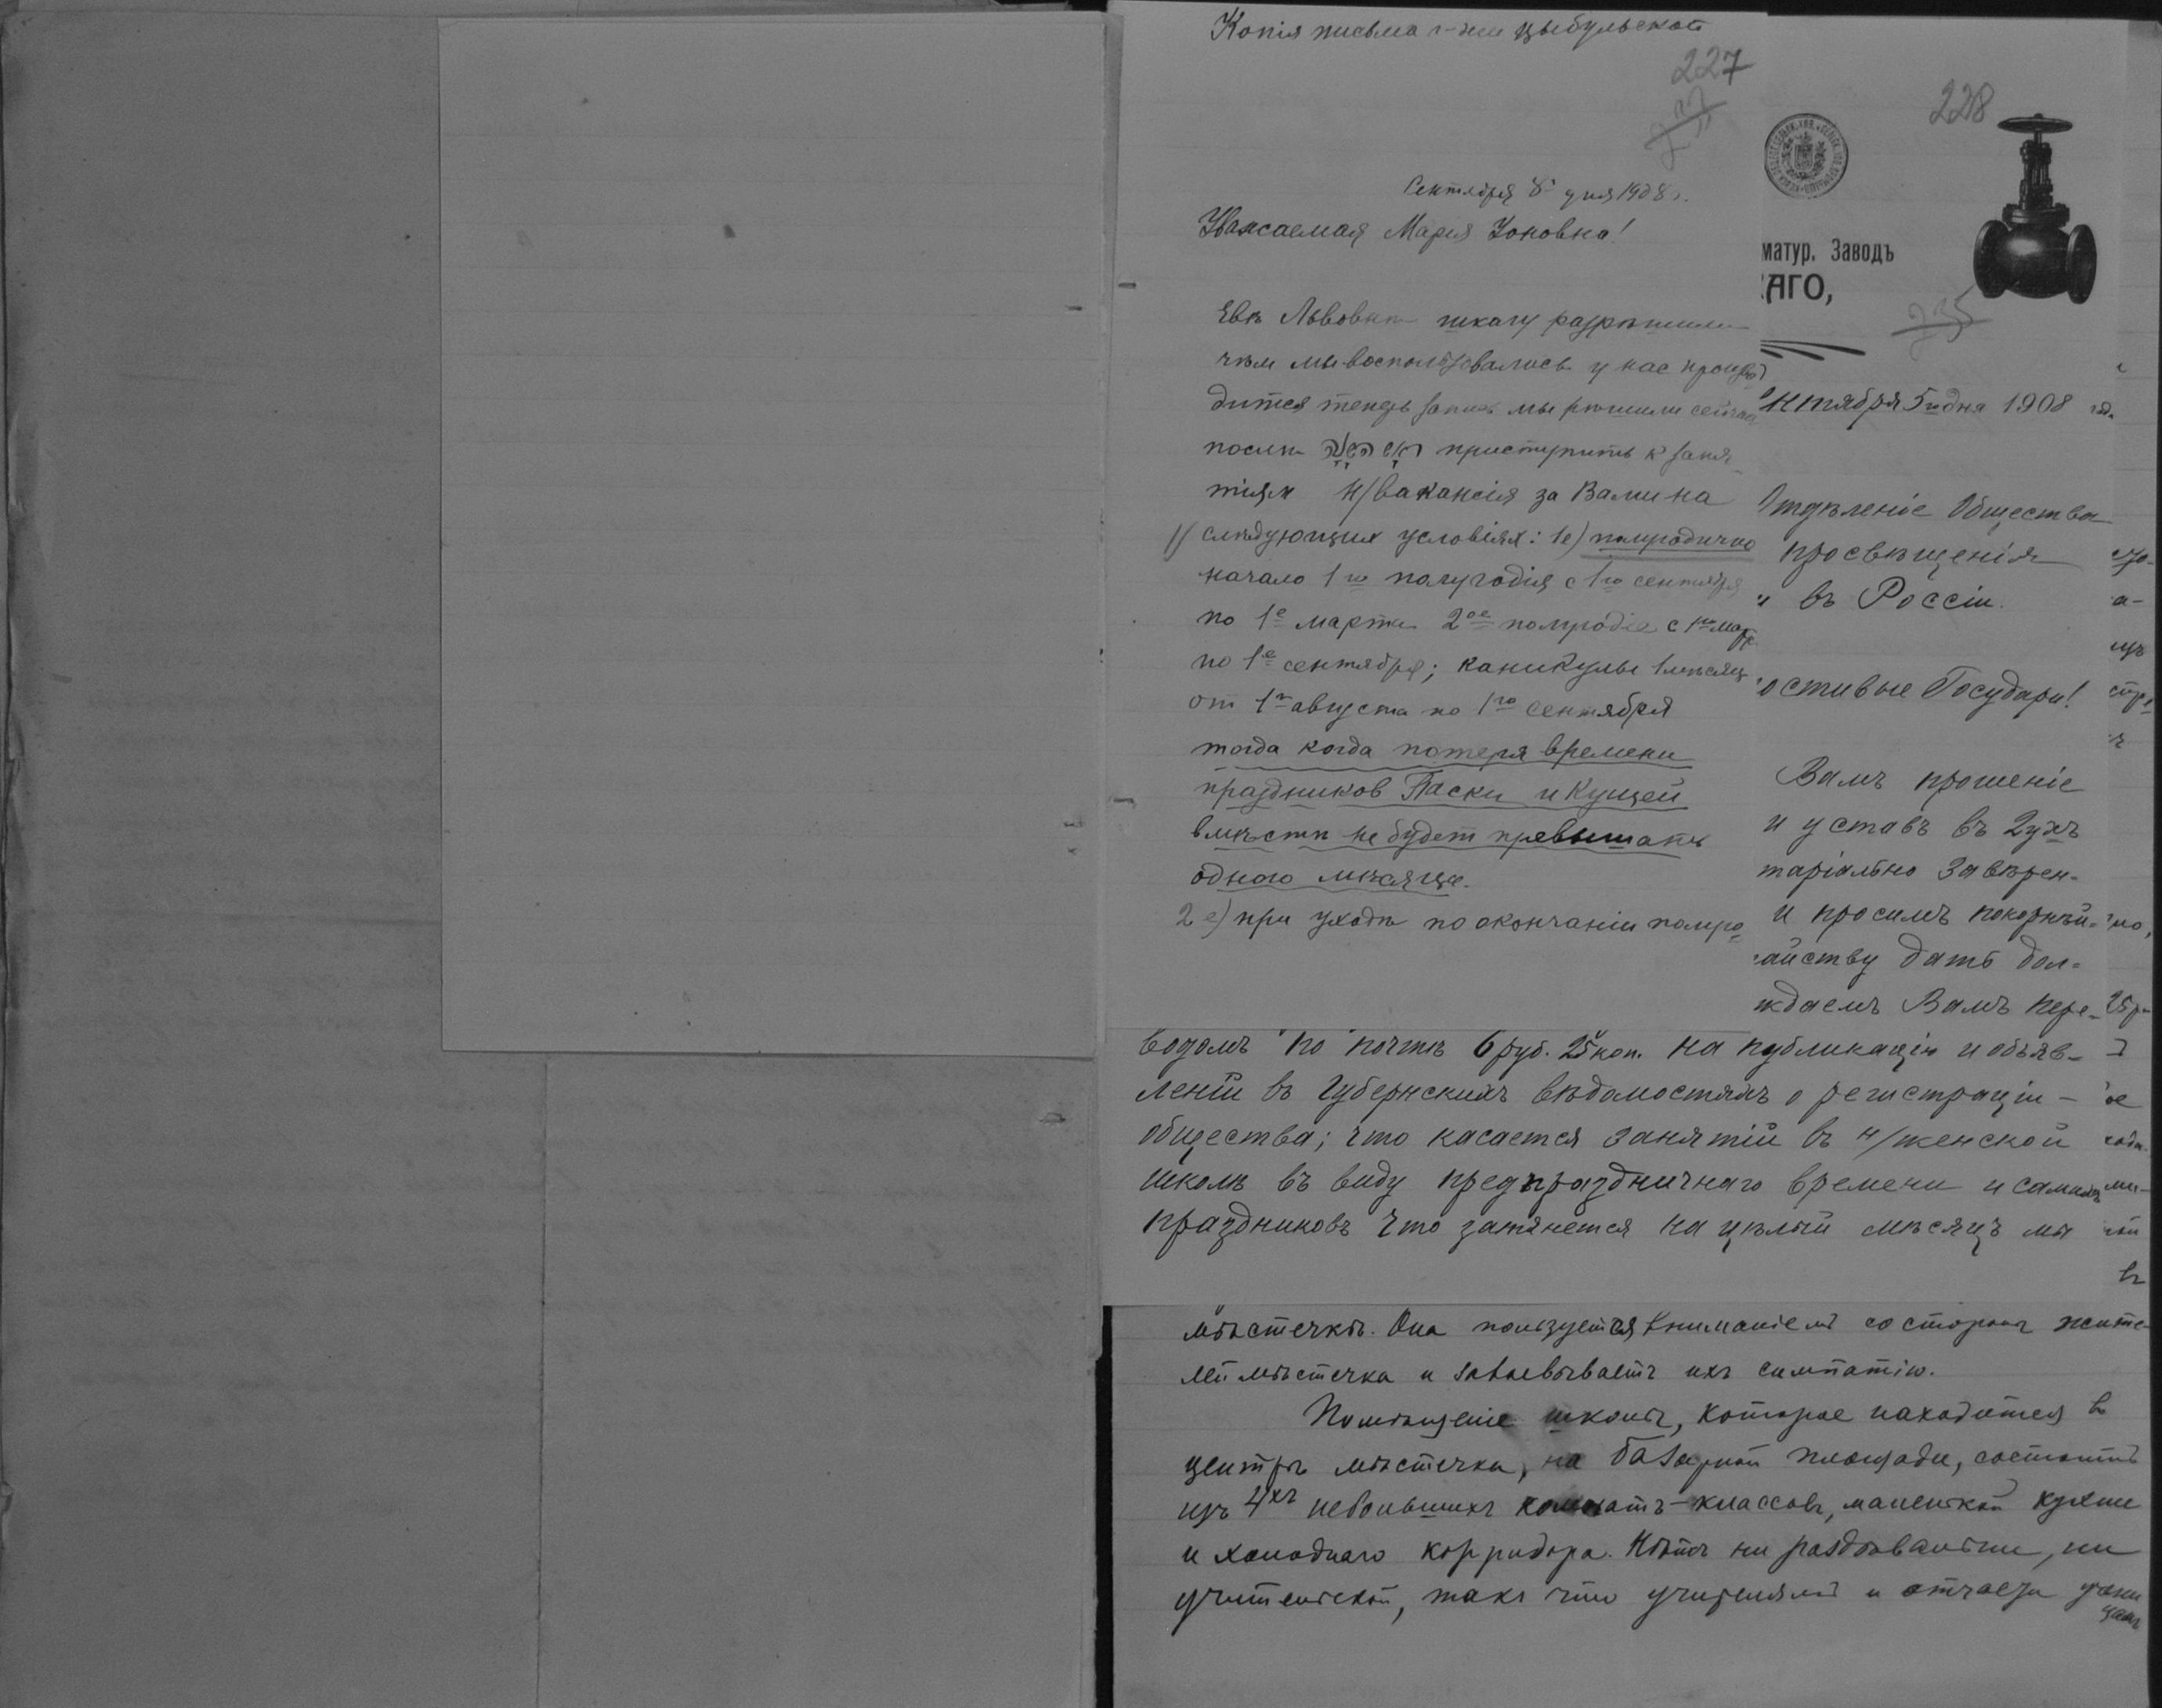 Копія письма г-жи Цыбульской
227
Сентября 8 дня 1908 г.
Уважаемая Мария Іоновна!
Евѣ Львовнѣ школу разрѣшили
чѣм мы воспользовались у нас произво
дится теперь запись мы рѣшили сейчас
послѣ приступить к заня
тіям н/вакансія за Вами на
1/ слѣдующих условіях: 1е) полугодично
начало 1го полугодія с 1го сентября
по 1е марта 2ое полугодіе с 1го мар
по 1е сентября; каникулы 1 мѣсяц
от 1го августа по 1го сентября
тогда когда потеря времени
праздников Пасхи и Кущей
вмѣстѣ не будет превышать
одного мѣсяца.
2е) при уходѣ по окончаніи полуго
228
матур. Заводъ
КАГО,
235
ентября 5го дня 1908 год.
Отдѣленіе Общества
просвѣщенія
въ Россіи.
остивые Государи!
Вамъ прошеніе
и уставъ въ 2ухъ
таріально завѣрен-
и просимъ покорнѣй-
айству дать дол-
ждаемъ Вамъ пере-
водомъ по почтѣ 6 руб. 25 коп. на публикацію и объяв-
леній въ Губернскихъ вѣдомостяхъ о регистраціи
общества; что касается занятій въ н/женской
школѣ въ виду предъпраздничнаго времени и самихъ
праздниковъ что затянется на цѣлый мѣсяцъ мы
25 р
мѣстечкѣ. Она пользуется вниманіемъ со стороны жите-
лей мѣстечка и завоевываетъ ихъ симпатію.
Помѣщеніе школы, которое находится въ
центрѣ мѣстечка, на базарной площади, состоитъ
изъ 4хъ небольшихъ комнатъ-классовъ, маленькой кухни
и холоднаго корридора. Нѣтъ ни раздѣвальни, ни
учительской, такъ что учителямъ и отчасти учени
цамъ